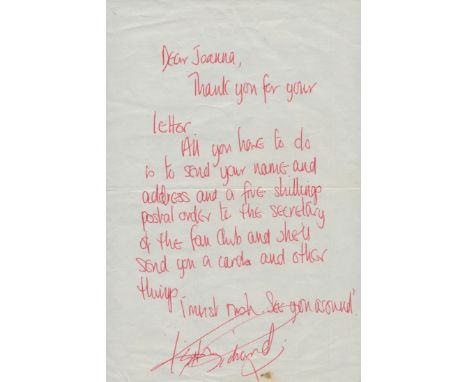 Dear Joanna,
Thank you for your
letter
All you have to do
is to send your name and
address and a five shillings
postal order to the secretary
of the fan club and she'll
send you a card and other
things.
I must rush. See you around.
Keith Richard